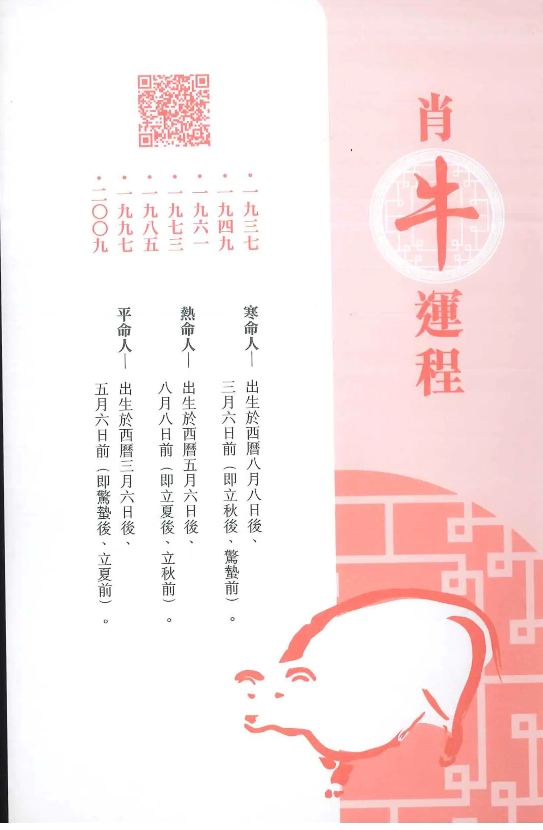 肖牛運程
• 一九三七
• 一九四九
• 一九六一
• 一九七三
• 一九八五
• 一九九七
• 二〇〇九
寒命人—出生於西曆八月八日後、
三月六日前（即立秋後、驚蟄前）。
熱命人—出生於西曆五月六日後、
八月八日前（即立夏後、立秋前）。
平命人—出生於西曆三月六日後、
五月六日前（即驚蟄後、立夏前）。